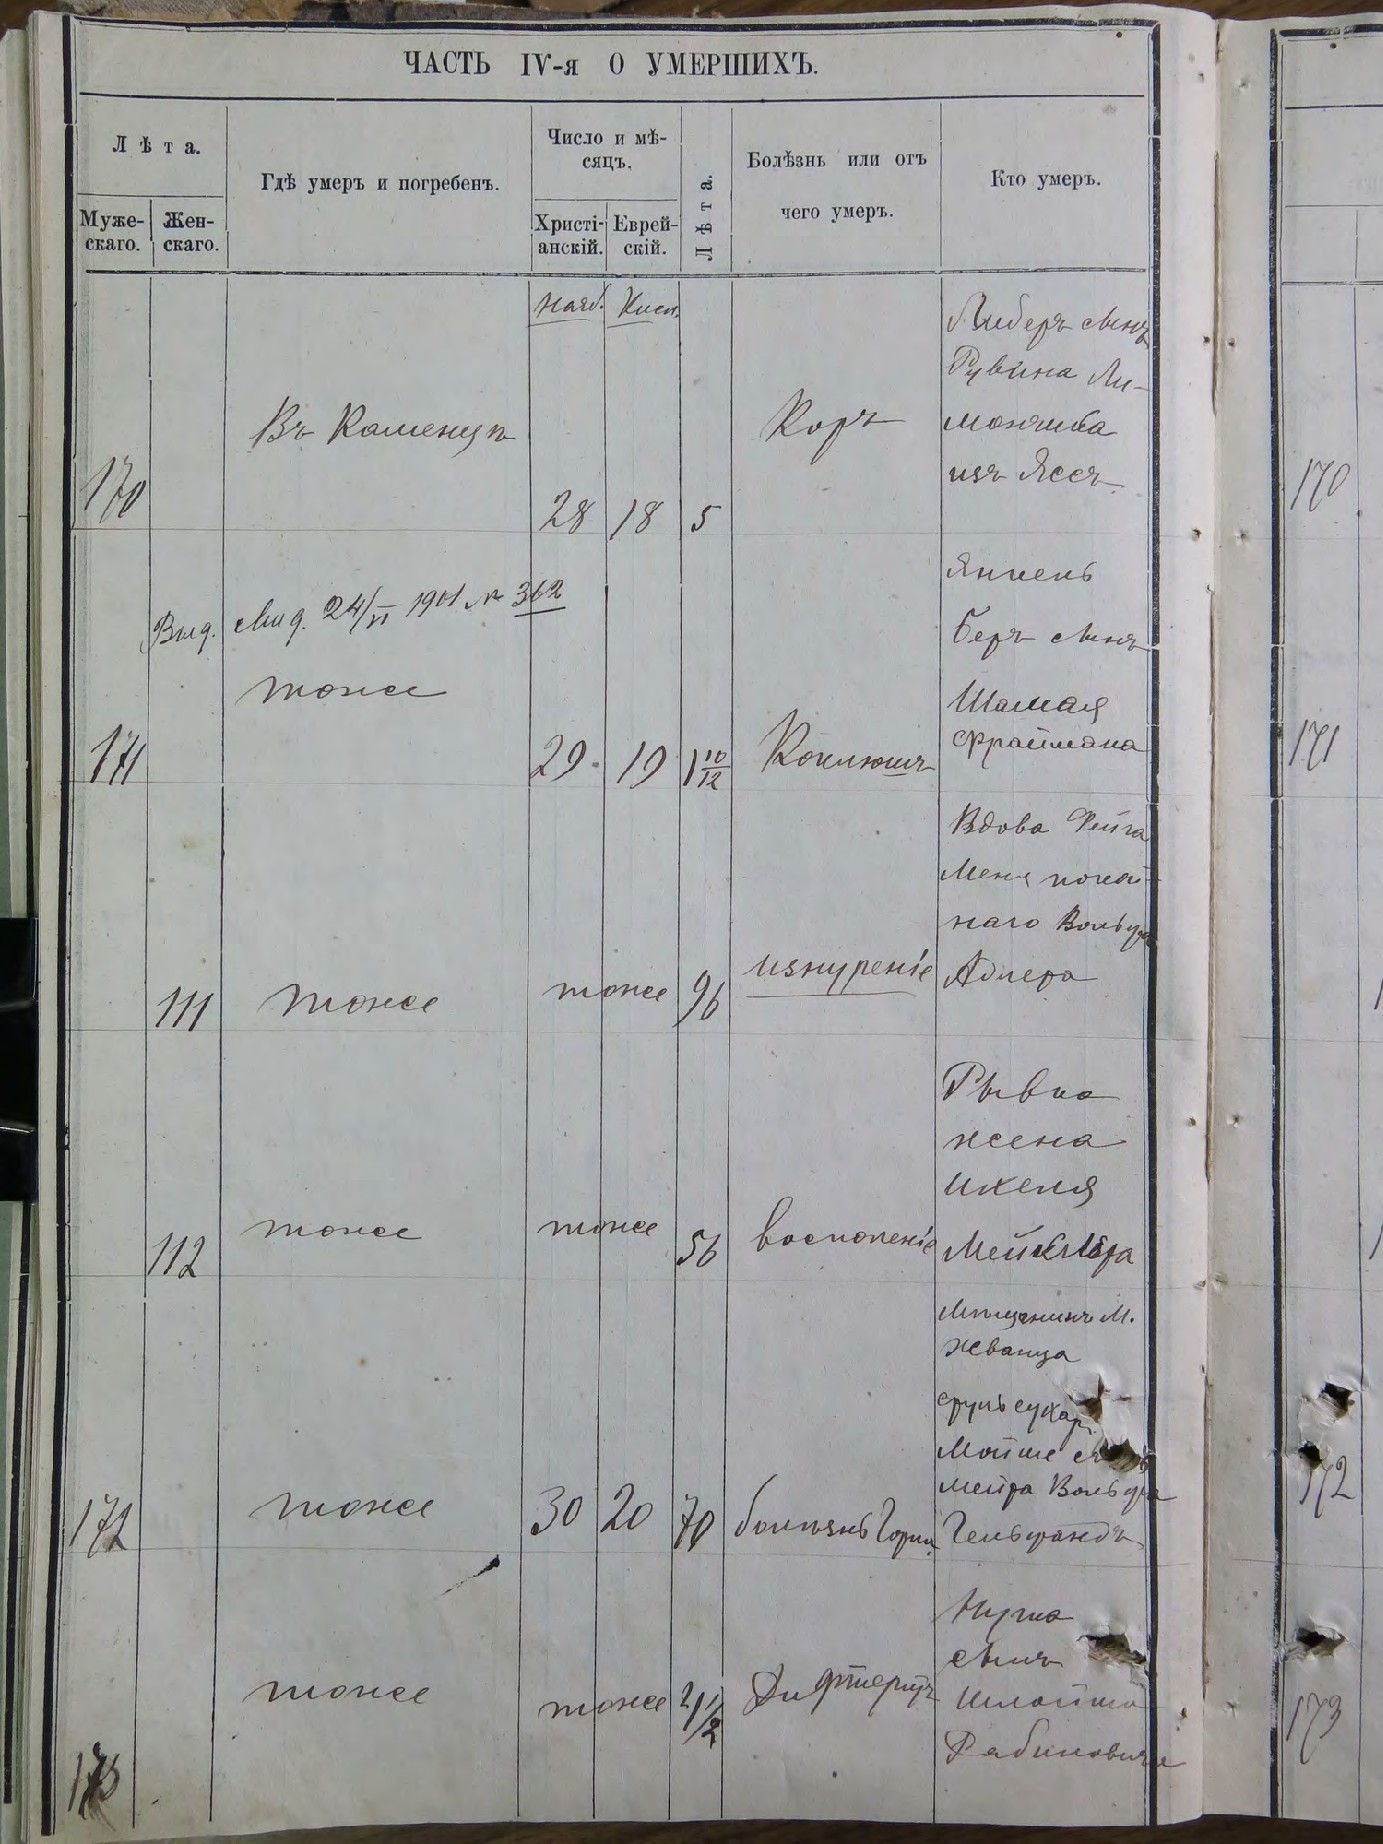 ЧАСТЬ IV-я О УМЕРШИХЪ.
Лѣта.
Муже-
скаго.
Жен-
скаго.
Гдѣ умеръ и погребенъ.
Число и мѣ-
сяцъ.
Христі-
анскій.
Еврей-
скій.
Лѣта.
Болѣзнь или отъ
чего умеръ.
Кто умеръ.
Нояб. Кисл.
170
Въ Каменцѣ
28 18 5
Коръ
Либеръ сынъ
Рувина Ли-
мончика
изъ Яссъ
170
Выд. свид. 24/VI 1901 № 362
171
тоже
29 19 1 10/12
Коклюшъ
Янкель
Беръ сынъ
Шамая
Фраймана
171
111
тоже
тоже 96
изнуреніе
Вдова Фейга
Меня покой-
наго Вольфа
Адлера
112
тоже
тоже 56
воспаленіе
Рывка
жена
Ихеля
Мейклера
172
тоже
30 20 70
болѣзнь Горла
Мѣщанинъ м.
Жванца
Сруль Сухар.
Мойше
Мейра Вольфа
Гельфандъ
172
173
тоже
тоже 2 1/2
Дифтеритъ
Нухта
сынъ
Шлойма
Рабиновича
173